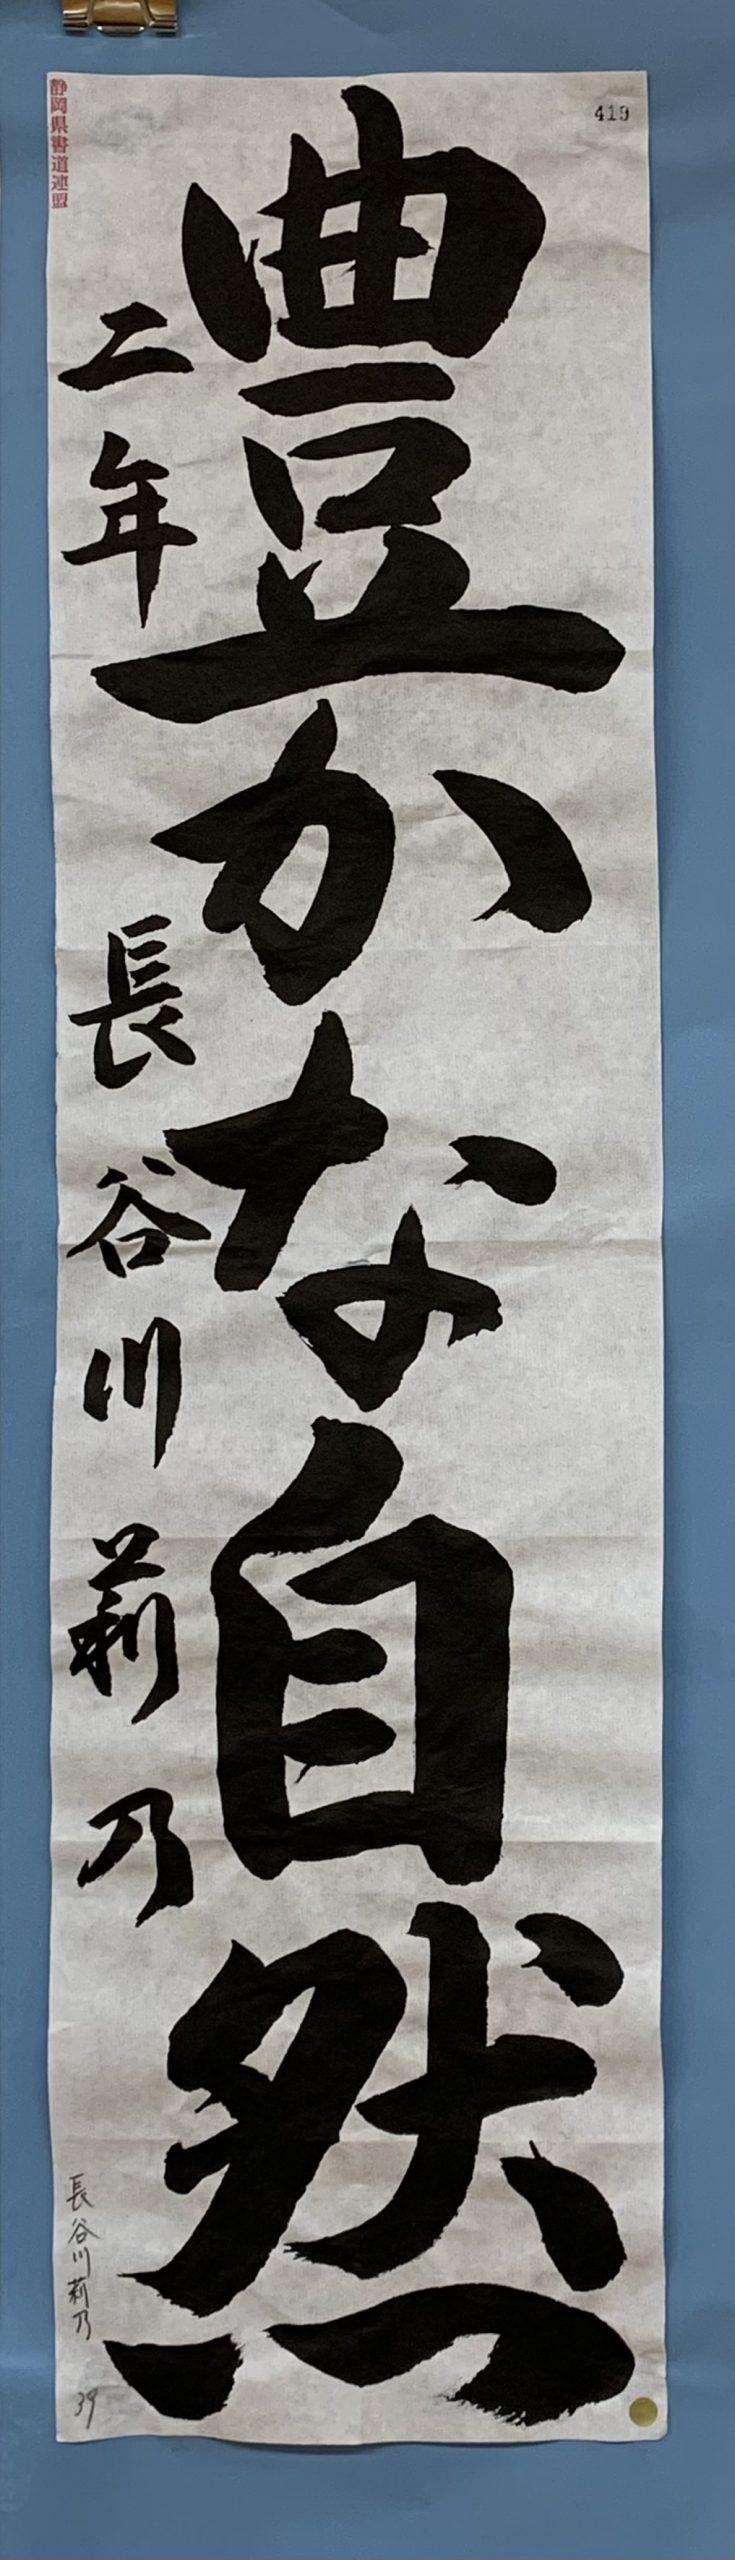 419
豊かな自然
二年 長谷川莉乃
静岡県書道連盟
長谷川莉乃
39